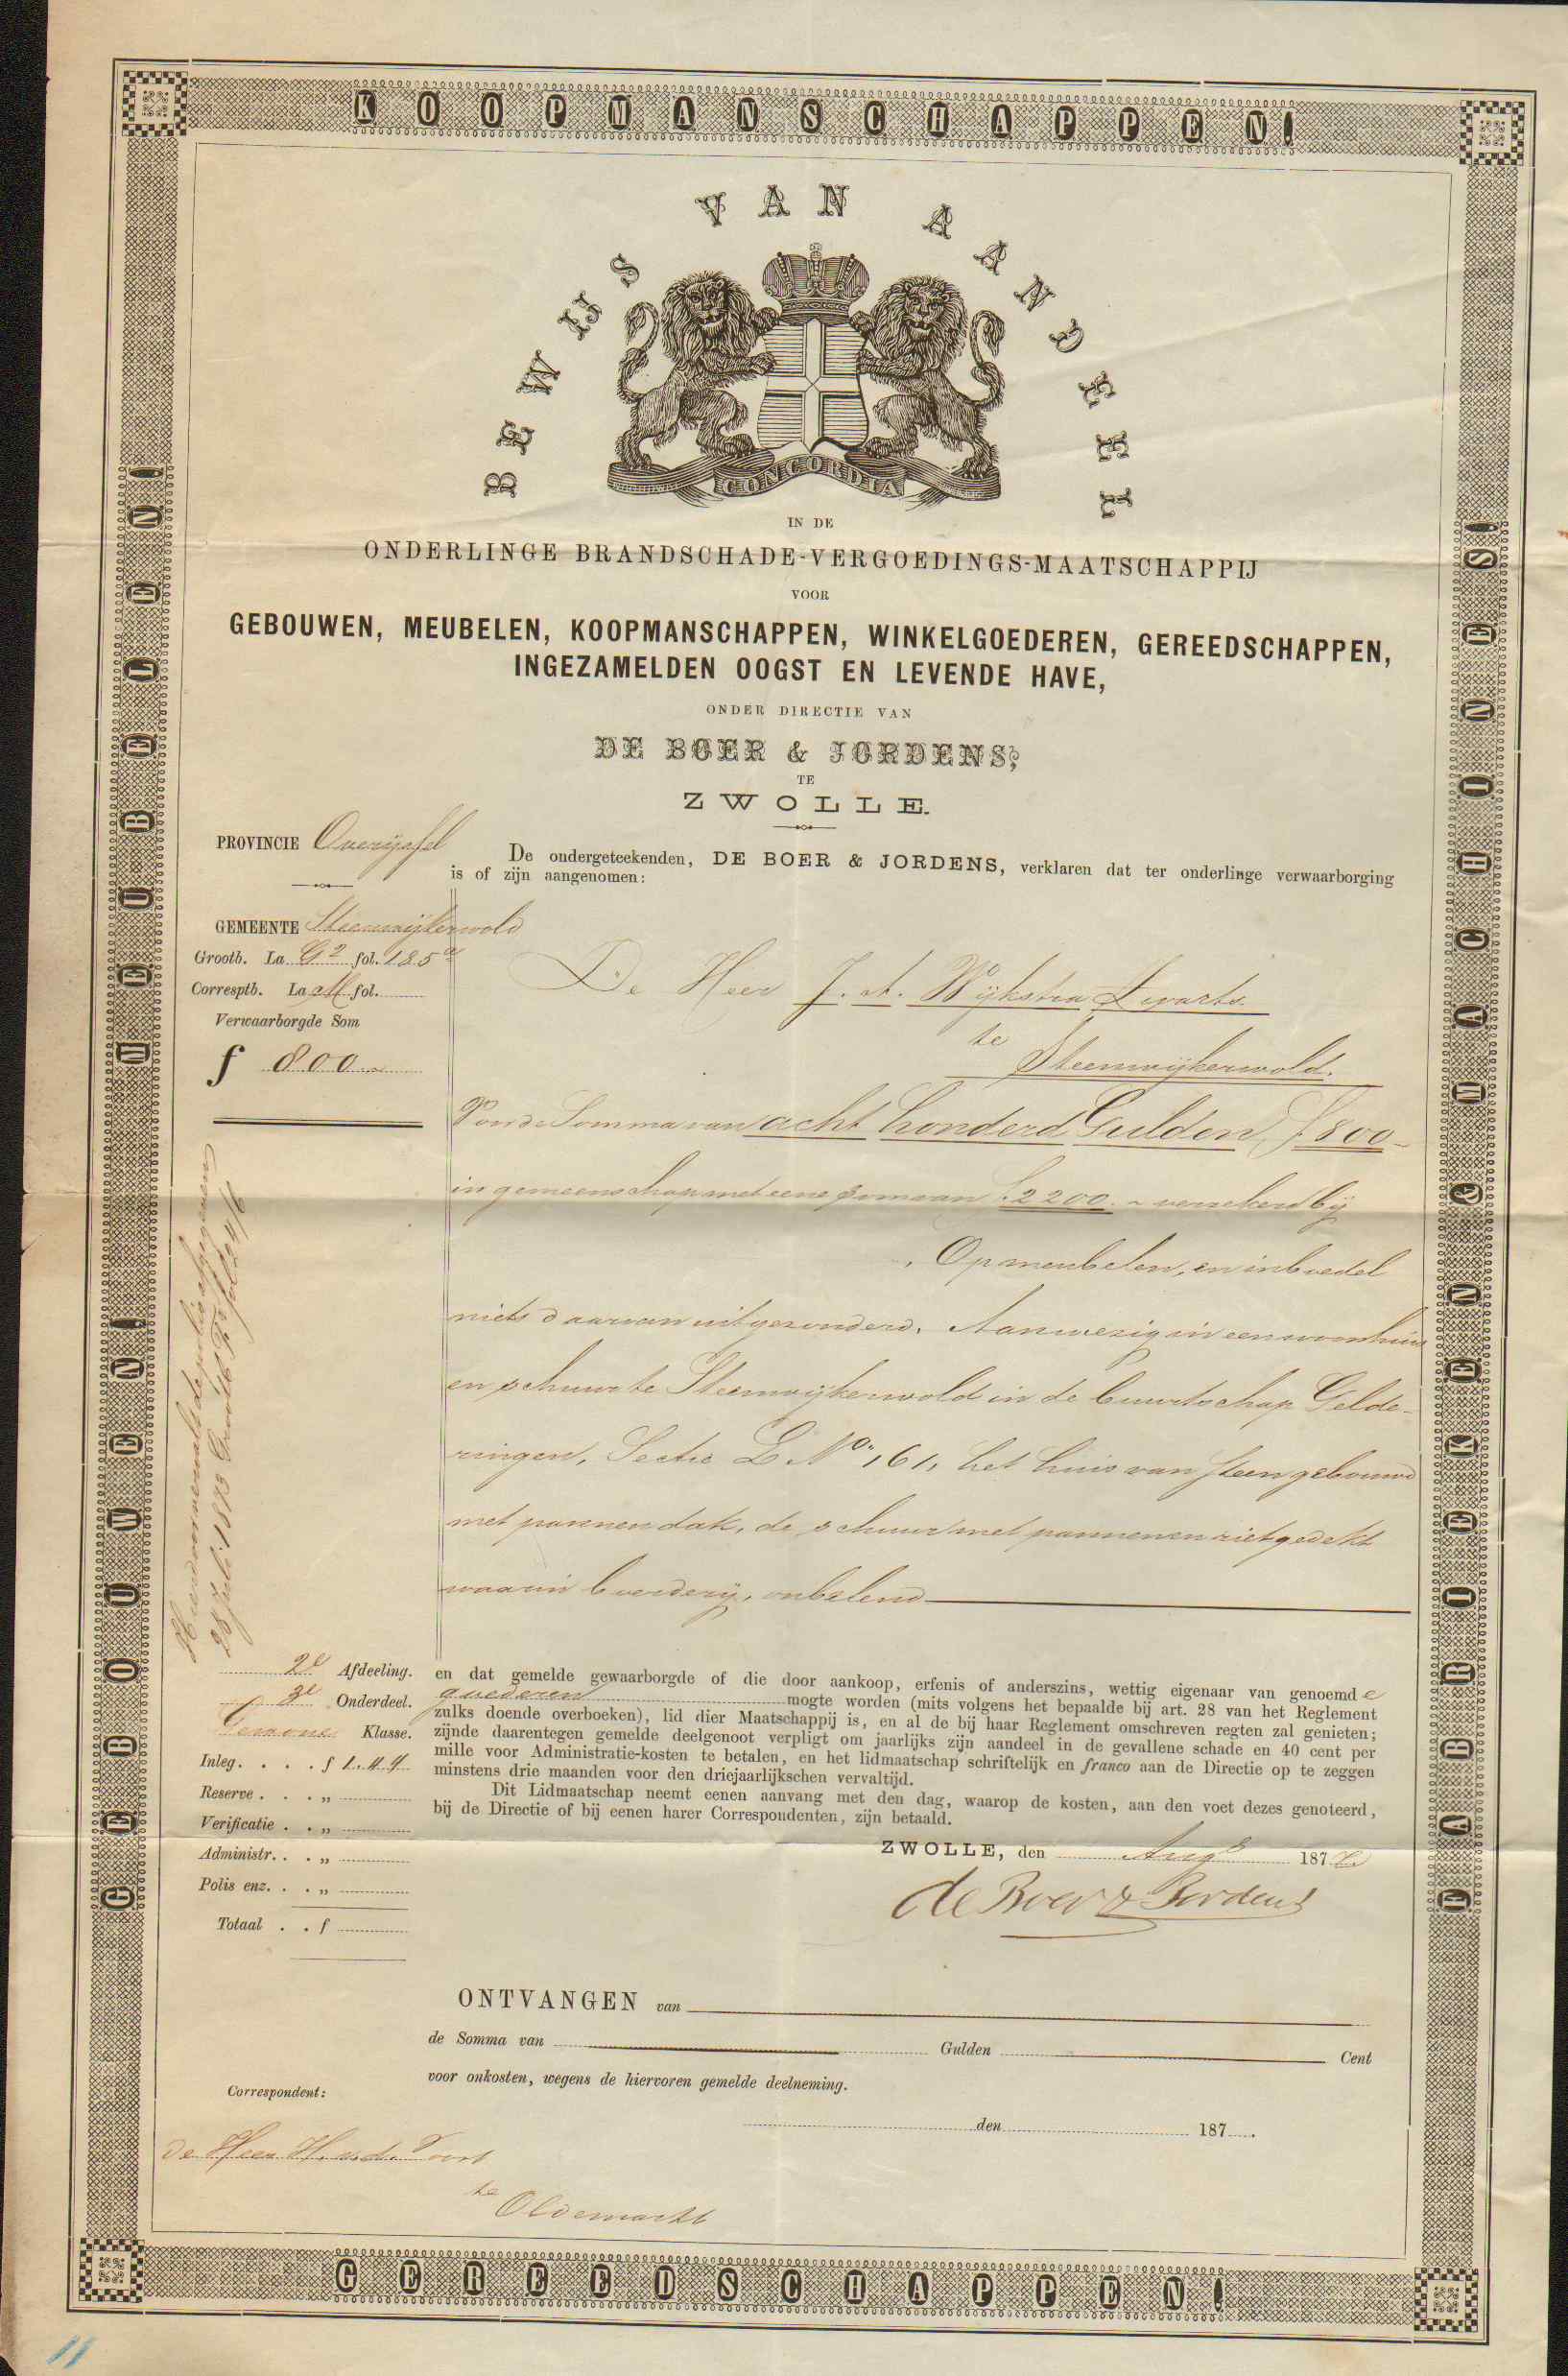 KOOPMANSCHAPPEN!
GEBOUWEN! MEUBELEN!
FABRIEKEN & MACHINES!
BEWIJS VAN AANDEEL
CONCORDIA
IN DE
ONDERLINGE BRANDSCHADE-VERGOEDINGS-MAATSCHAPPIJ
VOOR
GEBOUWEN, MEUBELEN, KOOPMANSCHAPPEN, WINKELGOEDEREN, GEREEDSCHAPPEN,
INGEZAMELDEN OOGST EN LEVENDE HAVE,
ONDER DIRECTIE VAN
DE BOER & JORDENS,
TE
ZWOLLE.
PROVINCIE Overijssel
De ondergeteekenden, DE BOER & JORDENS, verklaren dat ter onderlinge verwaarborging
is of zijn aangenomen:
GEMEENTE Steenwijkerwold
Grootb. La G2 fol. 185a
Corresptb. La M fol.
Verwaarborgde Som
f 800
De Heer J. A. Wijkstra Zwarts.
te
Steenwijkerwold.
Voor de Somma van acht honderd Gulden f 800-
in gemeenschap met eene som van f 2200 verzekerd bij
Op meubelen, en inboedel
niets daarvan uitgezonderd. Aanwezig in een woonhuis
en schuur te Steenwijkerwold in de buurtschap Gelde-
ringen, Sectie L No. 161, het huis van steen gebouwd
met pannen dak, de schuur met pannen en riet gedekt
waarin boerderij, onbelend
Hierdoor vervalt de polis afgegeven
28 Juli 1873 Grootb fol 24/6
2e Afdeeling.
3e Onderdeel.
Gewone Klasse.
Inleg. . . . f 1.44
Reserve . . . „
Verificatie . . „
Administr. . . „
Polis enz. . . „
Totaal . . f
en dat gemelde gewaarborgde of die door aankoop, erfenis of anderszins, wettig eigenaar van genoemde
goederen mogte worden (mits volgens het bepaalde bij art. 28 van het Reglement
zulks doende overboeken), lid dier Maatschappij is, en al de bij haar Reglement omschreven regten zal genieten;
zijnde daarentegen gemelde deelgenoot verpligt om jaarlijks zijn aandeel in de gevallene schade en 40 cent per
mille voor Administratie-kosten te betalen, en het lidmaatschap schriftelijk en franco aan de Directie op te zeggen
minstens drie maanden voor den driejaarlijkschen vervaltijd.
Dit Lidmaatschap neemt eenen aanvang met den dag, waarop de kosten, aan den voet dezes genoteerd,
bij de Directie of bij eenen harer Correspondenten, zijn betaald.
ZWOLLE, den Augs 187
de Boer & Jordens
ONTVANGEN van
de Somma van Gulden Cent
voor onkosten, wegens de hiervoren gemelde deelneming.
den 187 .
Correspondent:
de Heer H. v.d. Voort
te
Oldemarkt
GEREEDSCHAPPEN!
11